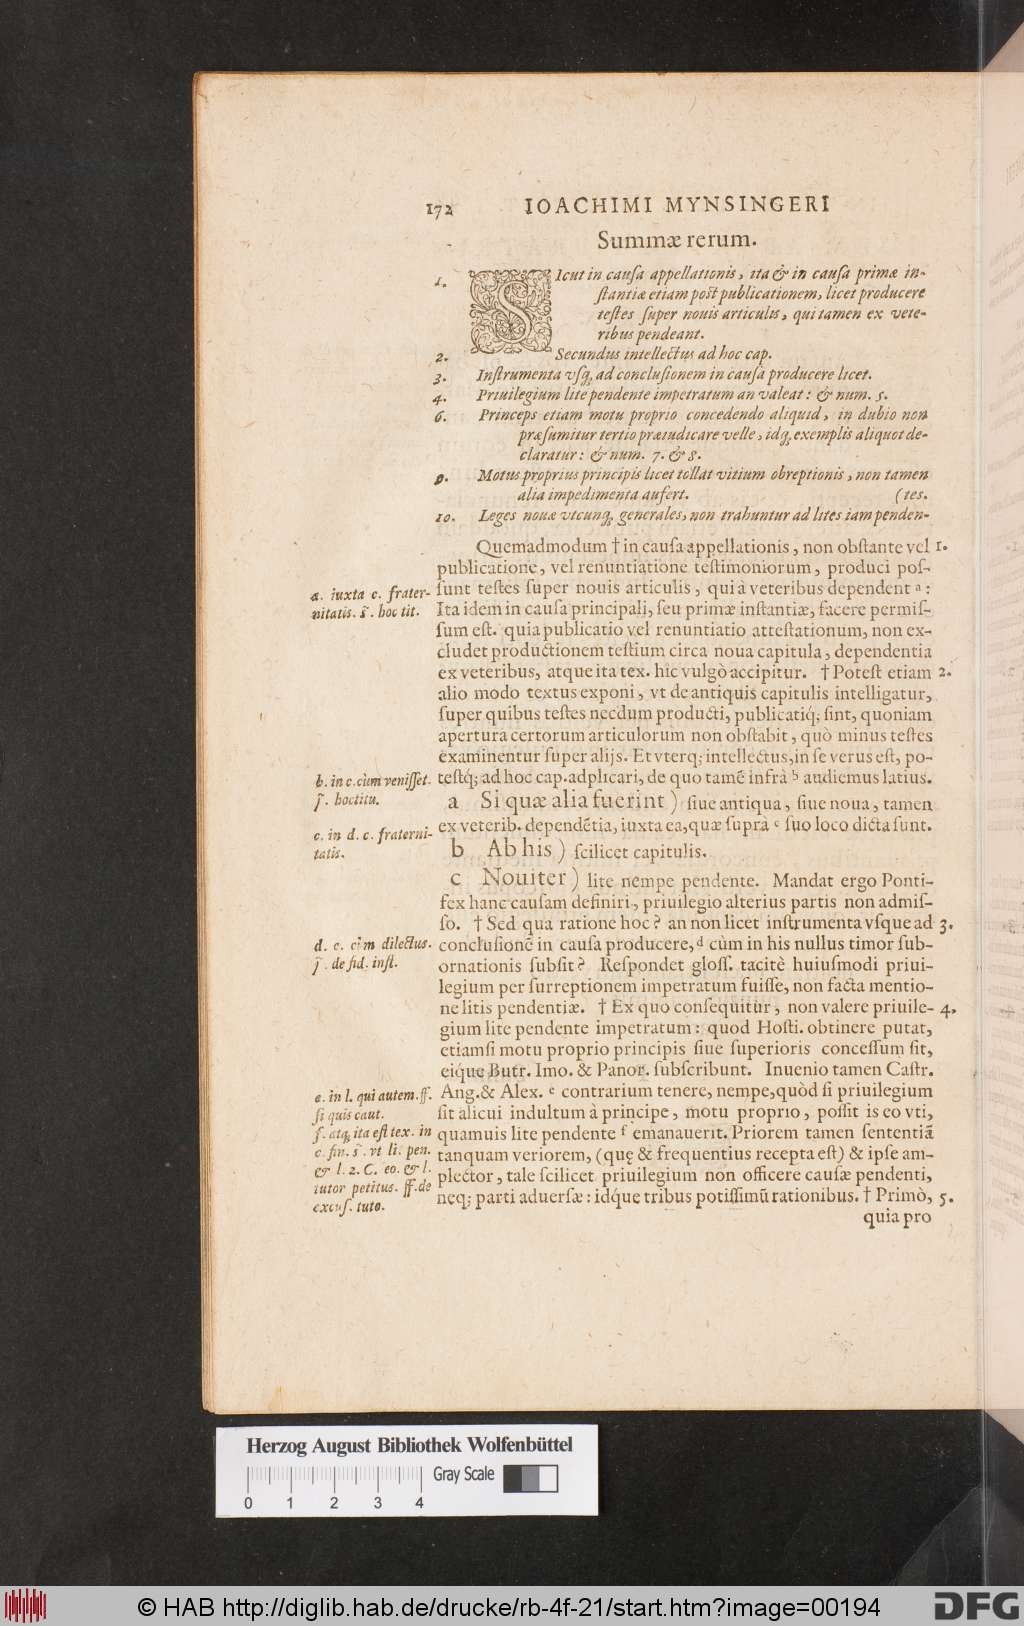 172 IOACHIMI MYNSINGERI
Summæ rerum.
1. SIcut in cauſa appellationis, ita & in cauſa primæ in-
ſtantiæ etiam poſt publicationem, licet producere
teſtes ſuper nouis articulis, qui tamen ex vete-
ribus pendeant.
2. Secundus intellectus ad hoc cap.
3. Inſtrumenta vſq; ad concluſionem in cauſa producere licet.
4. Priuilegium lite pendente impetratum an valeat: & num. 5.
6. Princeps etiam motu proprio concedendo aliquid, in dubio non
præſumitur tertio præiudicare velle, idq; exemplis aliquot de-
claratur: & num. 7. & 8.
9. Motus proprius principis licet tollat vitium obreptionis, non tamen
alia impedimenta aufert. (tes.
10. Leges nouæ vtcunq; generales, non trahuntur ad lites iam penden-
Quemadmodum † in cauſa appellationis, non obſtante vel 1.
publicatione, vel renuntiatione teſtimoniorum, produci poſ-
ſunt teſtes ſuper nouis articulis, qui à veteribus dependent a:
Ita idem in cauſa principali, ſeu primæ inſtantiæ, facere permiſ-
ſum eſt. quia publicatio vel renuntiatio atteſtationum, non ex-
cludet productionem teſtium circa noua capitula, dependentia
ex veteribus, atque ita tex. hic vulgò accipitur. † Poteſt etiam 2.
alio modo textus exponi, vt de antiquis capitulis intelligatur,
ſuper quibus teſtes necdum producti, publicatiq́; ſint, quoniam
apertura certorum articulorum non obſtabit, quò minus teſtes
examinentur ſuper alijs. Et vterq; intellectus, in ſe verus eſt, po-
teſtq; ad hoc cap. adplicari, de quo tamẽ infrà b audiemus latius.
a Si quæ alia fuerint) ſiue antiqua, ſiue noua, tamen
ex veterib. dependẽtia, iuxta ea, quæ ſuprà c ſuo loco dicta ſunt.
b Ab his) ſcilicet capitulis.
c Nouiter) lite nempe pendente. Mandat ergo Ponti-
fex hanc cauſam definiri, priuilegio alterius partis non admiſ-
ſo. † Sed qua ratione hoc? an non licet inſtrumenta vſque ad 3.
concluſionẽ in cauſa producere, d cùm in his nullus timor ſub-
ornationis ſubſit? Reſpondet gloſſ. tacitè huiuſmodi priui-
legium per ſurreptionem impetratum fuiſſe, non facta mentio-
ne litis pendentiæ. † Ex quo conſequitur, non valere priuile- 4.
gium lite pendente impetratum: quod Hoſti. obtinere putat,
etiamſi motu proprio principis ſiue ſuperioris conceſſum ſit,
eiq́ue Butr. Imo. & Panor. ſubſcribunt. Inuenio tamen Caſtr.
Ang. & Alex. e contrarium tenere, nempe, quòd ſi priuilegium
ſit alicui indultum à principe, motu proprio, poſſit is eo vti,
quamuis lite pendente f emanauerit. Priorem tamen ſententiã
tanquam veriorem, (quę & frequentius recepta eſt) & ipſe am-
plector, tale ſcilicet priuilegium non officere cauſæ pendenti,
neq; parti aduerſæ: idq́ue tribus potiſſimũ rationibus. † Primò, 5.
quia pro
a. iuxta c. frater-
nitatis. s̃. hoc tit.
b. in c. cùm veniſſet.
j̃. hoc titu.
c. in d. c. fraterni-
tatis.
d. c. cùm dilectus.
j̃. de fid. inſt.
e. in l. qui autem. ff.
ſi quis caut.
f. atq; ita eſt tex. in
c. fin. s̃. vt li. pen.
& l. 2. C. eo. & l.
tutor petitus. ff. de
excuſ. tuto.
Herzog August Bibliothek Wolfenbüttel
Gray Scale
0 1 2 3 4
© HAB http://diglib.hab.de/drucke/rb-4f-21/start.htm?image=00194
DFG